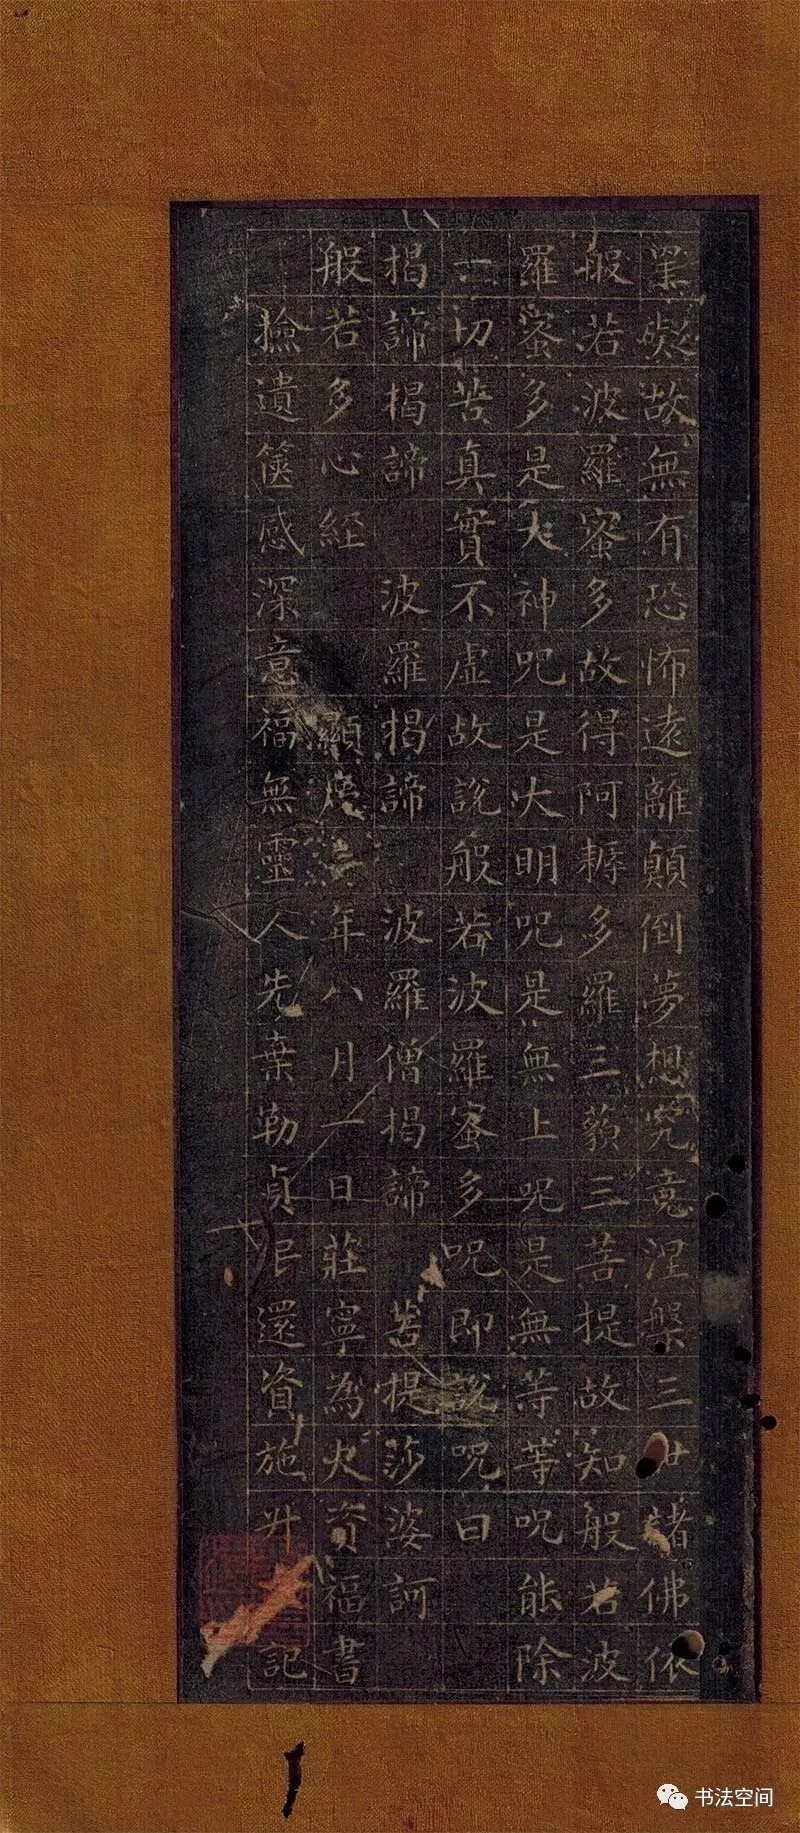 罣礙故無有恐怖遠離顛倒夢想究竟涅槃三世諸佛依
般若波羅蜜多故得阿耨多羅三藐三菩提故知般若波
羅蜜多是大神呪是大明呪是無上呪是無等等呪能除
一切苦真實不虛故說般若波羅蜜多呪即說呪曰
揭諦揭諦 波羅揭諦 波羅僧揭諦 菩提莎婆訶
般若多心經 顯慶 年八月一日莊寧為 資福書
撿遺篋感深意福無靈人先棄勒貞 還資施 記
书法空间